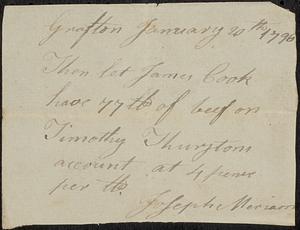 Grafton January 20th 1796
Then let James Cook
have 77 lb of beef on
Timothy Thurstons
account at 4 pence
per lb
Joseph Merriam